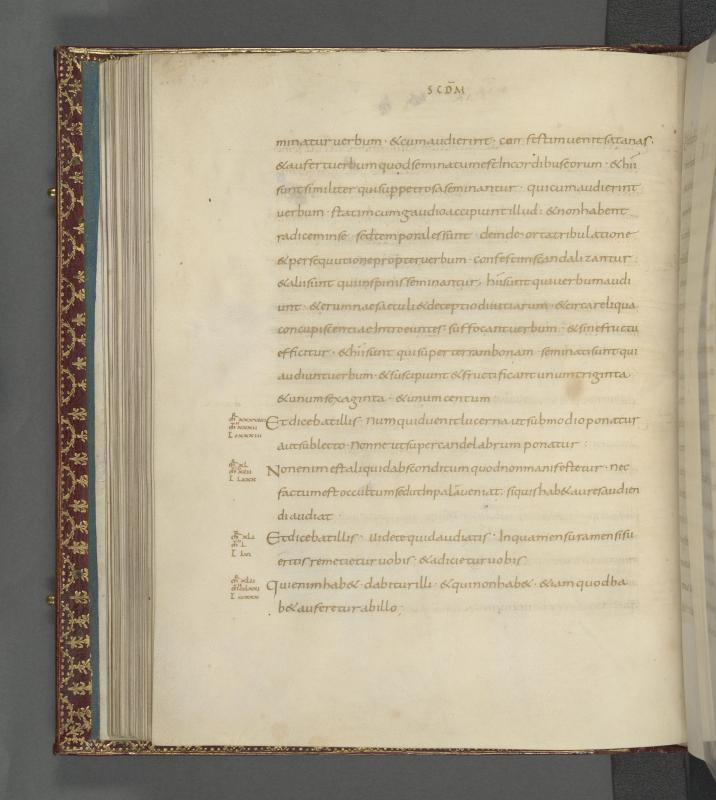 SCDM
minatur uerbum · & cum audierint · confestim uenit satanas ·
& aufert uerbum quod seminatum est In cordibus eorum · & hii
sunt similiter qui suppetrosa seminantur · qui cum audierint
uerbum · statim cum gaudio accipiunt illud : & non habent
radicem in se · sed temporales sunt · deinde orta tribulatione
& persequutione propter uerbum · confestim scandalizantur ·
& alii sunt qui in spinis seminantur · hii sunt qui uerbum audi
unt · & erumnae saeculi & deceptio diuitiarum & circa reliqua
concupiscentiae Introeuntes · suffocant uerbum · & sine fructu
efficitur · & hii sunt qui super terram bonam seminati sunt qui
audiunt uerbum · & suscipiunt & fructificant unum triginta
& unum sexaginta · & unum centum
Et dicebat illis · numquid uenit lucerna ut sub modio ponatur
aut sub lecto · Nonne ut super candelabrum ponatur :
Non enim est aliquid absconditum quod non manifestetur · nec
factum est occultum sed ut In palam ueniat · si quis hab& aures audien
di audiat ·
Et dicebat illis · uidete quid audiatis · In qua mensura mensi fu
eritis remetietur uobis · & adicietur uobis
Qui enim hab& · dabitur illi · & qui non hab& · & iam quod ha
b& auferetur ab illo ;